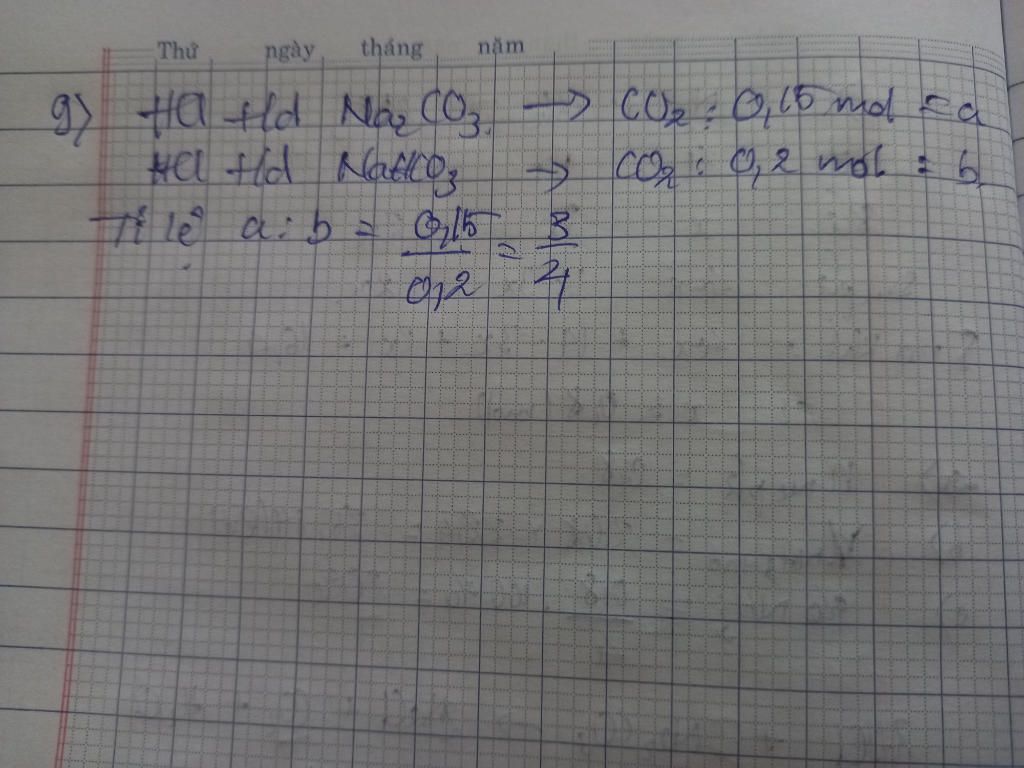 Thứ ngày tháng năm
9) HCl + Hd Na₂CO₃ → CO₂ : 0,15 mol = a
HCl + Hd NaHCO₃ → CO₂ : 0,2 mol = b
Tỉ lệ a : b = 0,15/0,2 = 3/4